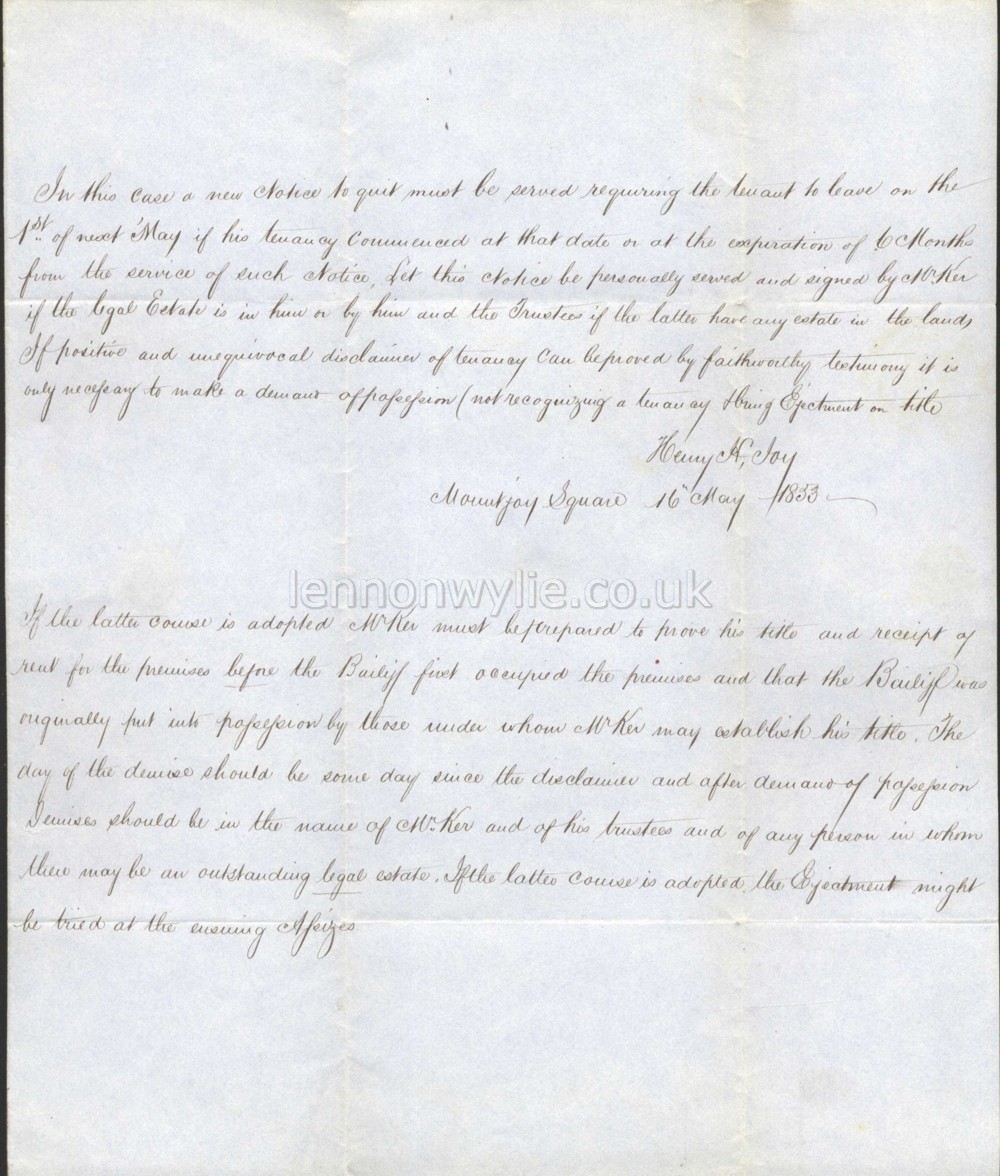 In this case a new Notice to quit must be served requiring the tenant to leave on the
1st. of next May if his tenancy commenced at that date or at the expiration of 6 Months
from the service of such Notice, Let this Notice be personally served and signed by Mr. Ker
if the legal Estate is in him or by him and the Trustees if the latter have any estate in the lands
If positive and unequivocal disclaimer of tenancy can be proved by faithworthy testimony it is
only necessary to make a demand of possession (not recognizing a tenancy & bring Ejectment on title
Henry H, Joy
Mountjoy Square 16th May 1853
lennonwylie.co.uk
If the latter course is adopted Mr Ker must be prepared to prove his title and receipt of
rent for the premises before the Bailiff first occupied the premises and that the Bailiff was
originally put into possession by those under whom Mr Ker may establish his title. The
day of the demise should be some day since the disclaimer and after demand of possession
Demises should be in the name of Mr. Ker and of his trustees and of any person in whom
there may be an outstanding legal estate. If the latter course is adopted, the Ejectment might
be tried at the ensuing Assizes